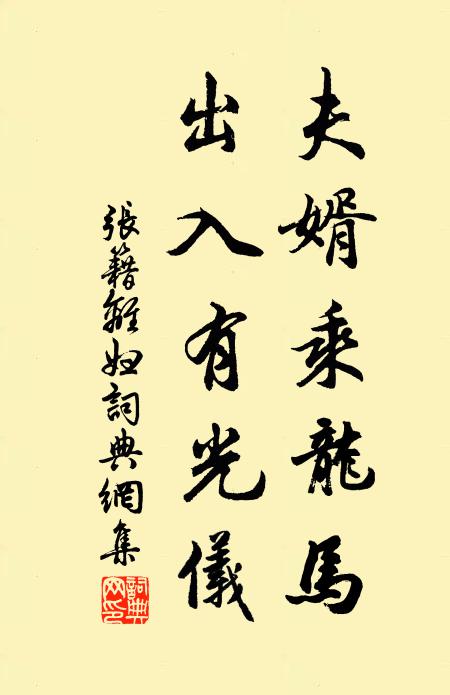 夫婿乘龍馬
出入有光儀
張籍離婦詞典網集
詞典
网印